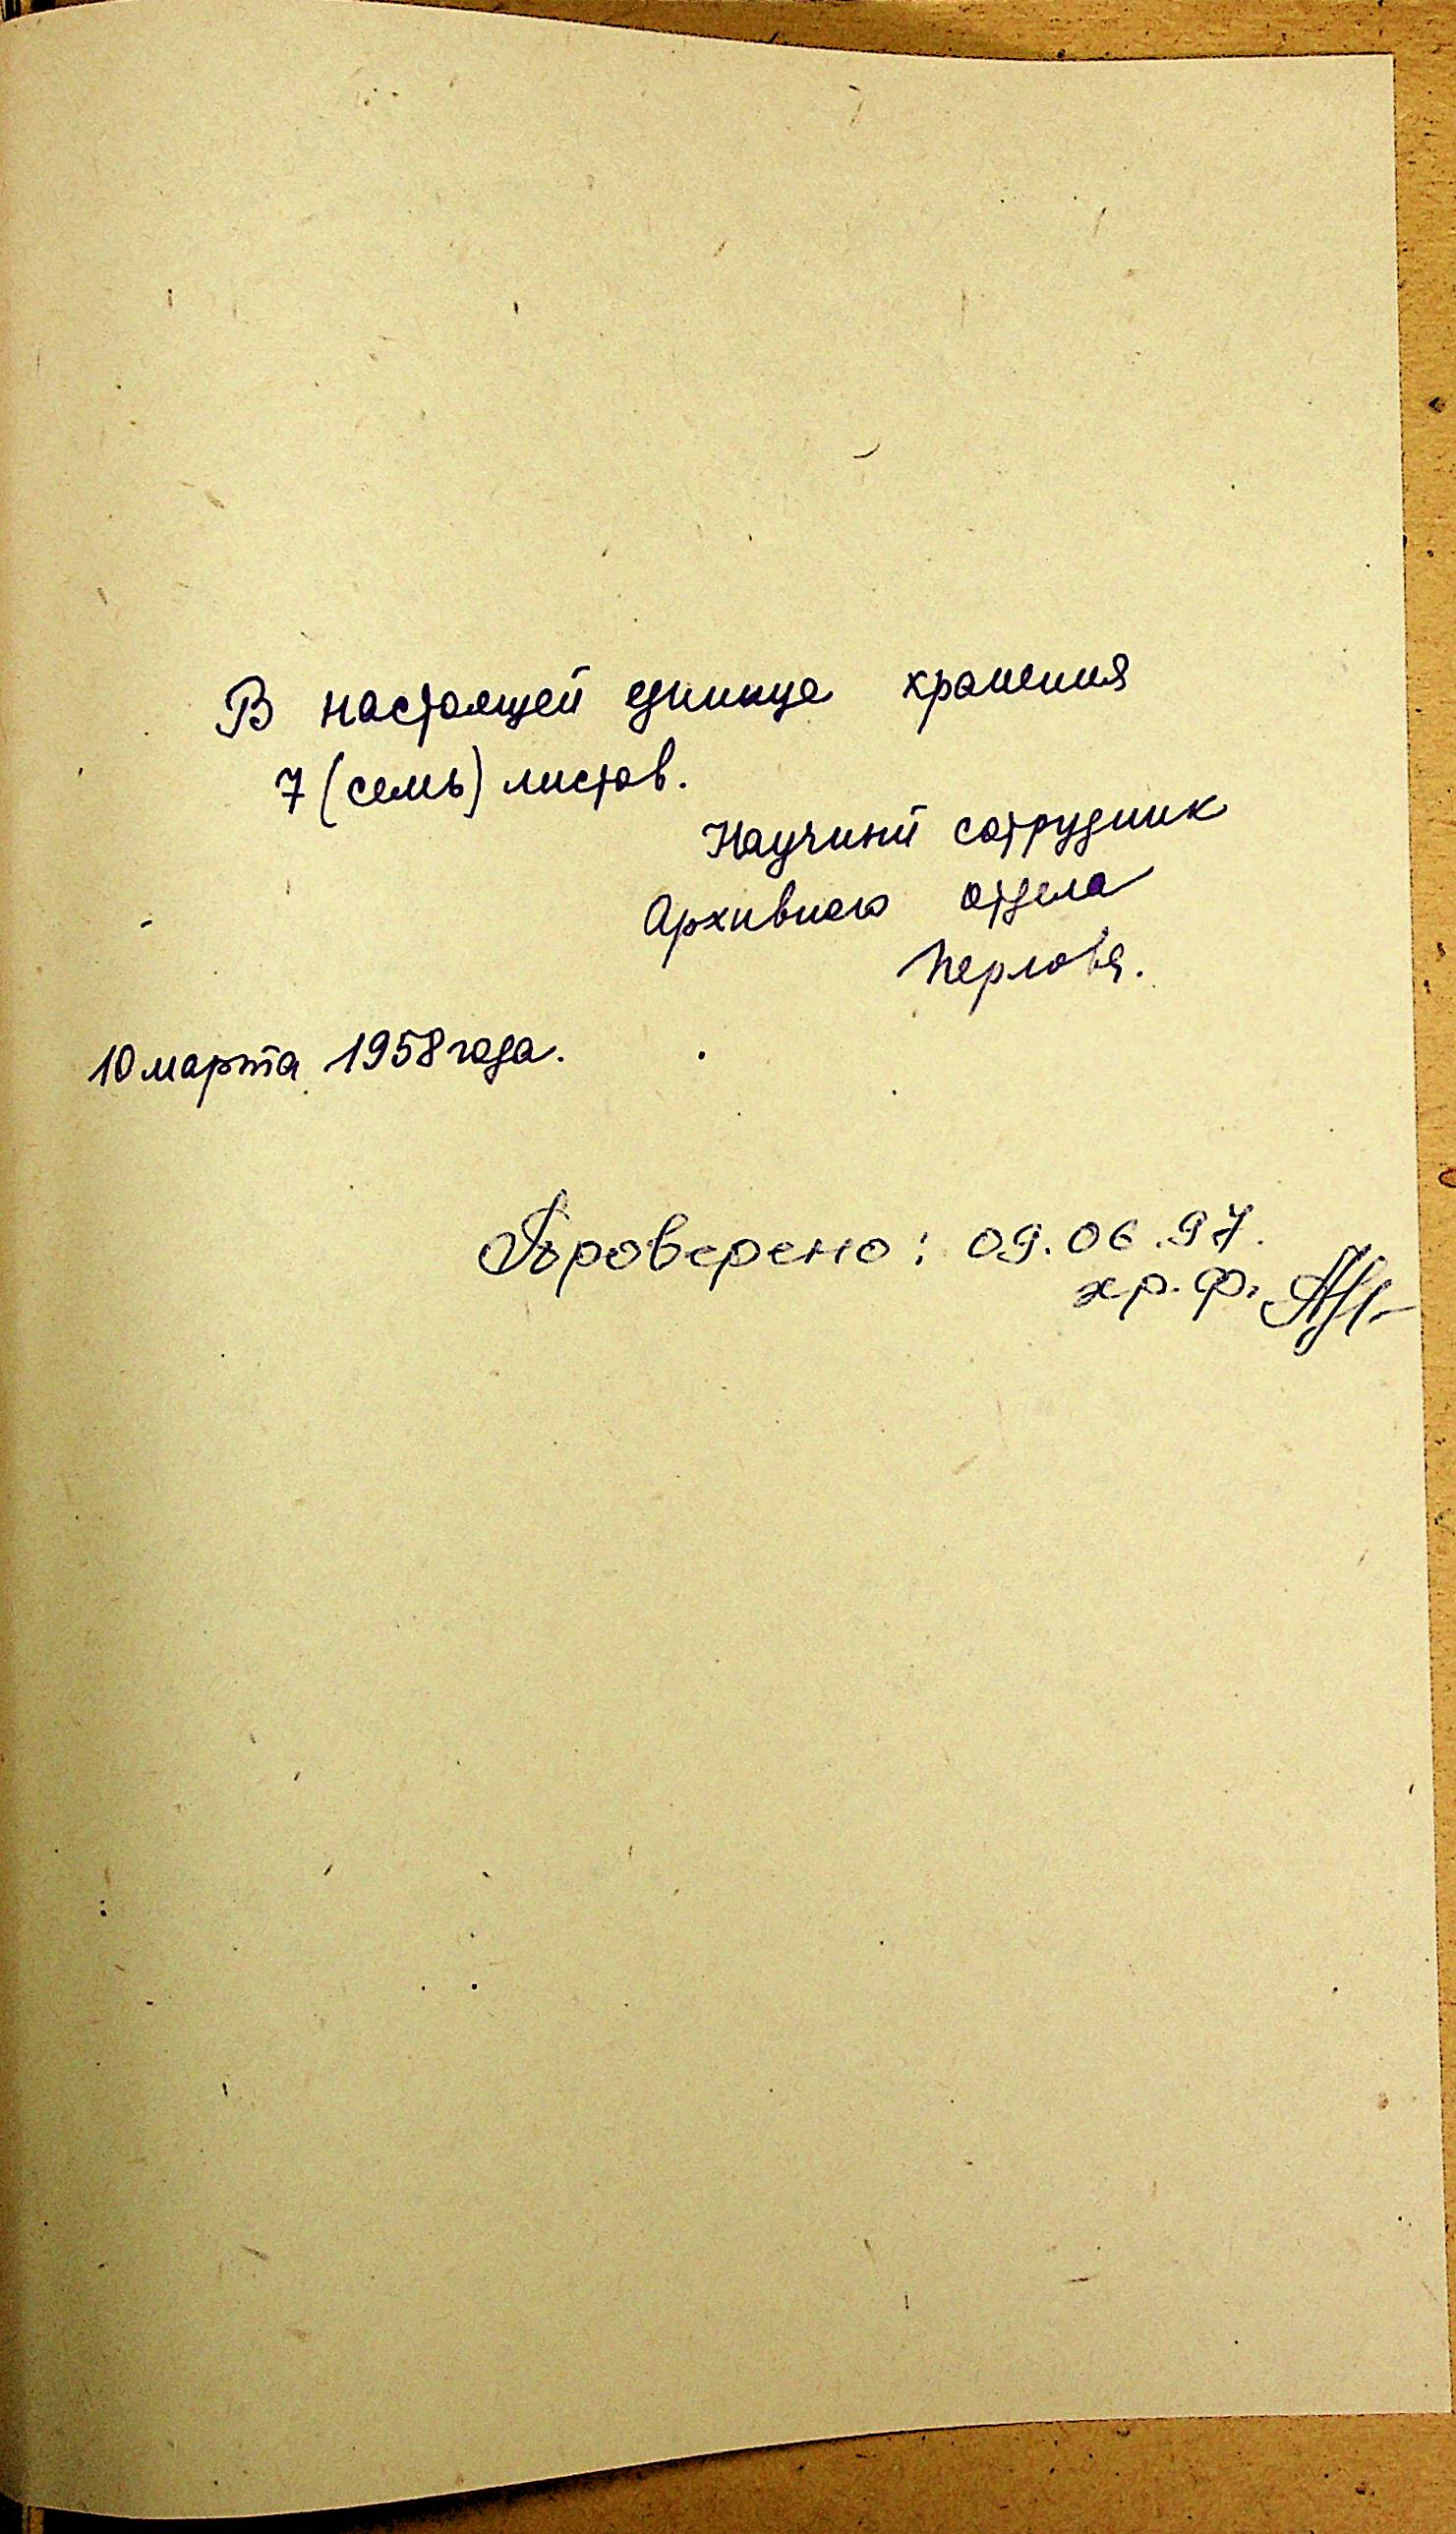 В настоящей единице хранения
7 (семь) листов.
Научный сотрудник
Архивного отдела
Перлова.
10 марта 1958 года.
Проверено: 09.06.97.
хр. ф.